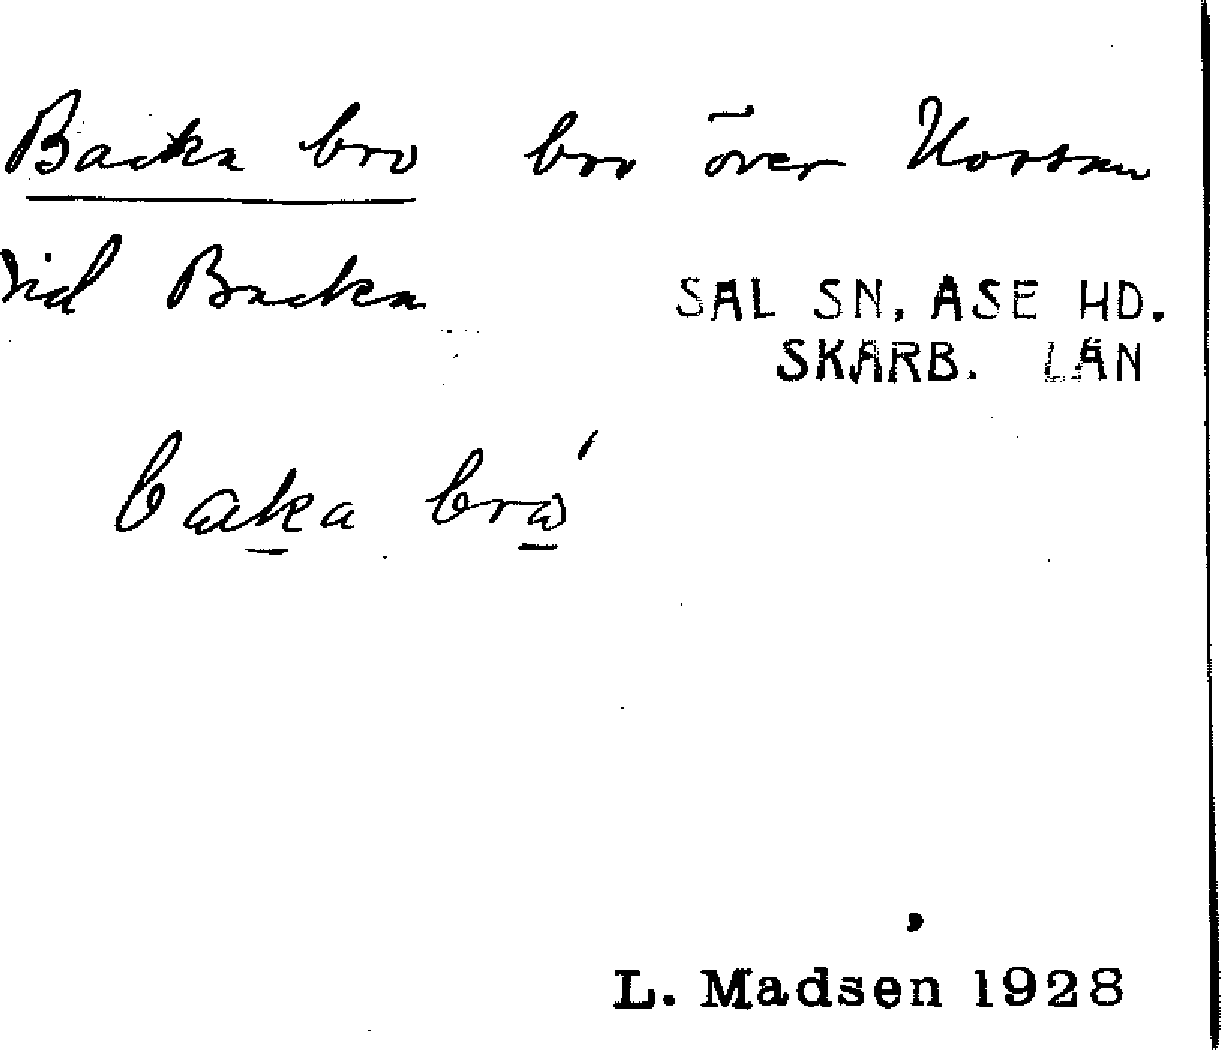 Backa bro bro över Nossan
vid Backa
SAL SN, ASE HD.
SKARB. LÄN
L. Madsen 1928